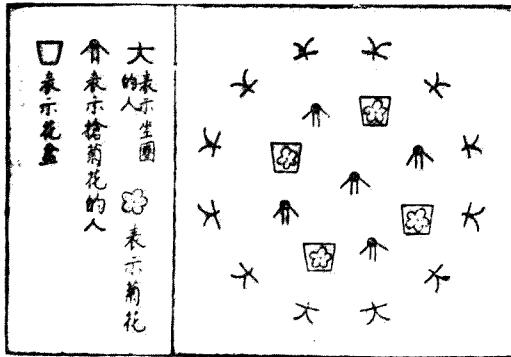 表示坐圈
的人
表示菊花
表示搶菊花的人
表示花盆